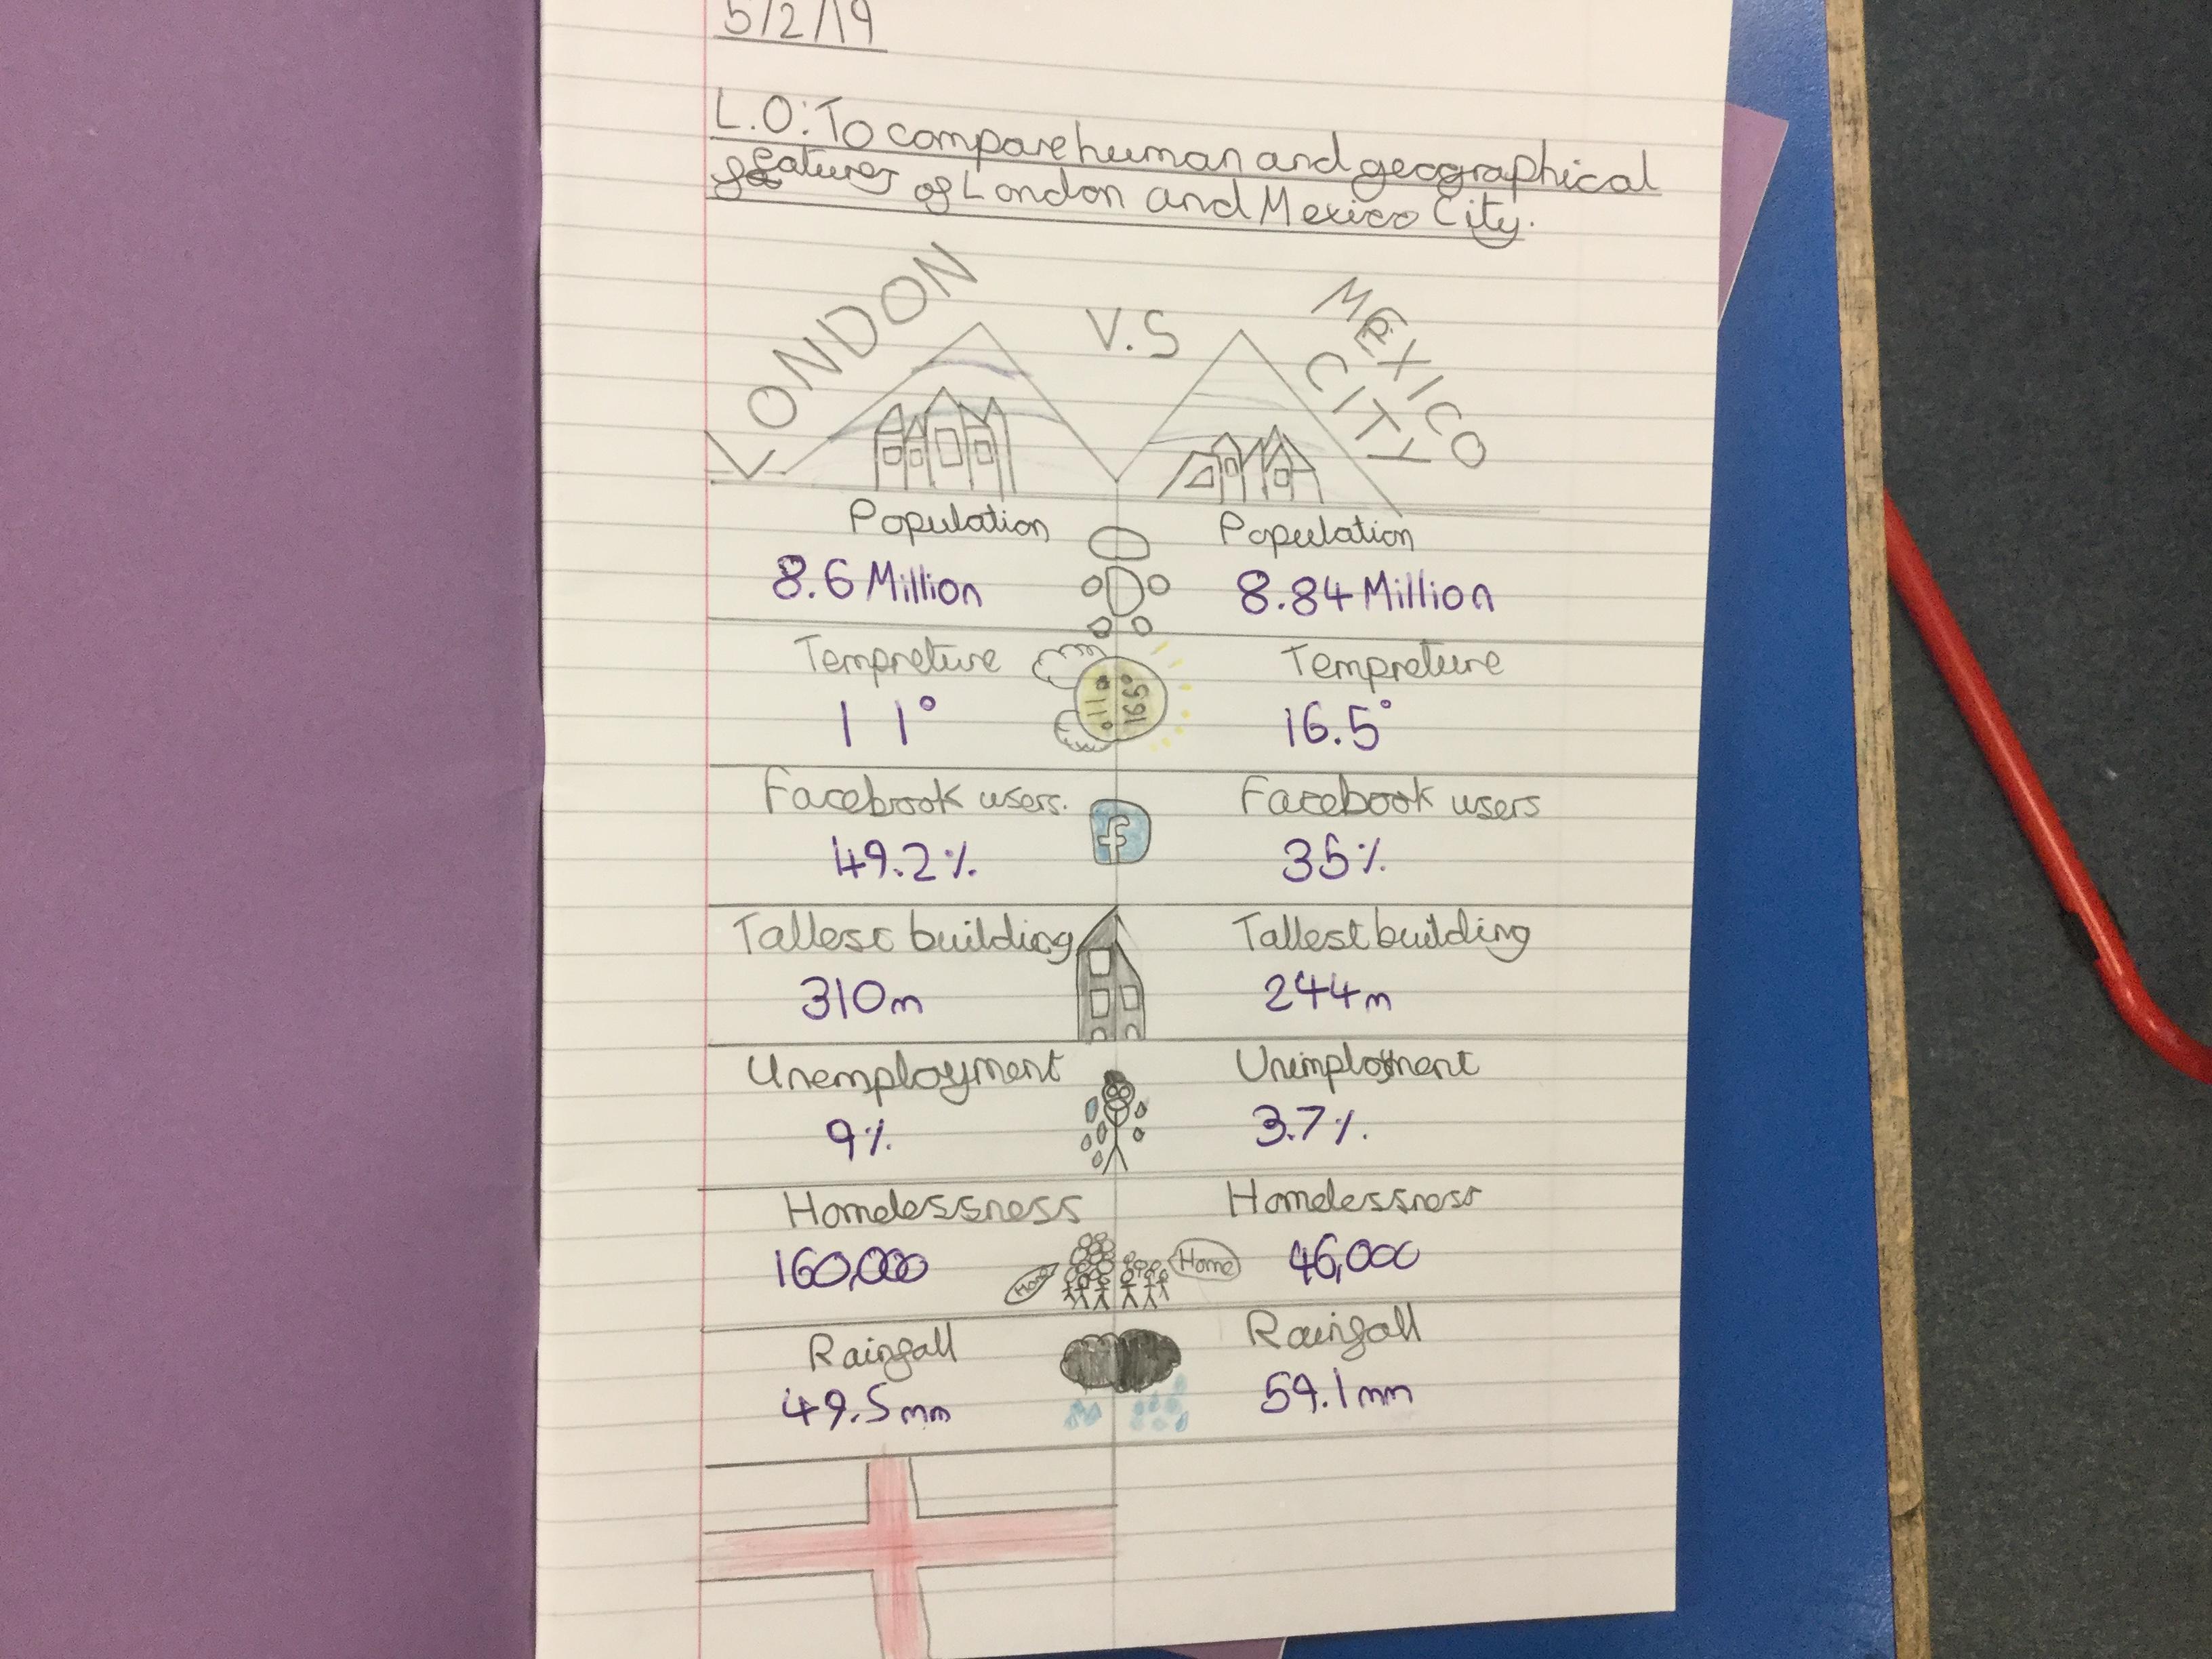 5/2/19
L.O: To compare human and geographical
features of London and Mexico City.
LONDON V.S MEXICO CITY
Population Population
8.6 Million 8.84 Million
Tempreture Tempreture
11° 11° 16.5° 16.5°
Facebook users. Facebook users
49.2% f 35%
Tallest building Tallest building
310m 244m
Unemployment Unimployment
9% 3.7%
Homelessness Homelessness
160,000 Home Home 46,000
Rainfall Rainfall
49.5mm 59.1mm